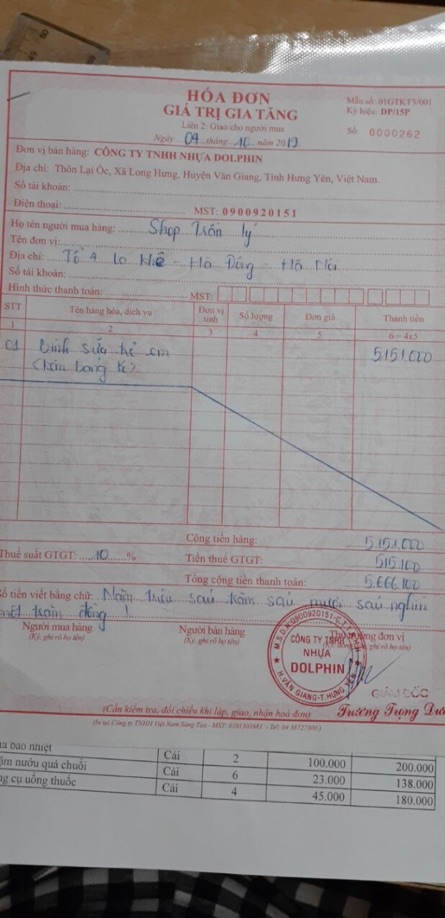 HÓA ĐƠN
GIÁ TRỊ GIA TĂNG
Liên 2: Giao cho người mua
Ngày 09 tháng 10 năm 2019
Mẫu số: 01GTKT3/001
Ký hiệu: DP/15P
Số 0000262
Đơn vị bán hàng: CÔNG TY TNHH NHỰA DOLPHIN
Địa chỉ: Thôn Lại Ốc, Xã Long Hưng, Huyện Văn Giang, Tỉnh Hưng Yên, Việt Nam.
Số tài khoản:
Điện thoại: MST: 0900920151
Họ tên người mua hàng: Shop Trần Lý
Tên đơn vị:
Địa chỉ: Tổ 4 La Khê - Hà Đông - Hà Nội
Số tài khoản:
Hình thức thanh toán: MST:
STT Tên hàng hóa, dịch vụ Đơn vị tính Số lượng Đơn giá Thành tiền
1 2 3 4 5 6 = 4x5
01 Bình sữa trẻ em 5.151.000
Cộng tiền hàng: 5.151.000
Thuế suất GTGT: 10 % Tiền thuế GTGT: 515.100
Tổng cộng tiền thanh toán: 5.666.100
Số tiền viết bằng chữ: Năm triệu sáu trăm sáu mươi sáu nghìn
một trăm đồng!
Người mua hàng Người bán hàng Thủ trưởng đơn vị
(Ký, ghi rõ họ tên) (Ký, ghi rõ họ tên)
M.S.D.N:0900920151-C.T.
CÔNG TY TNHH
NHỰA
DOLPHIN
H.VĂN GIANG-T.HƯNG
GIÁM ĐỐC
Trương Trọng
(Cần kiểm tra, đối chiếu khi lập, giao, nhận hoá đơn)
bao nhiệt Cái 2 100.000 200.000
nướu quả chuối Cái 6 23.000 138.000
cụ uống thuốc Cái 4 45.000 180.000